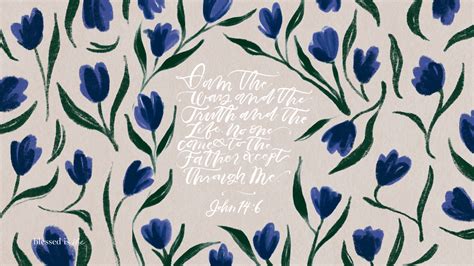 I am the
Way and the
Truth and the
Life. No one
comes to the
Father except
through Me
John 14:6
blessed is she